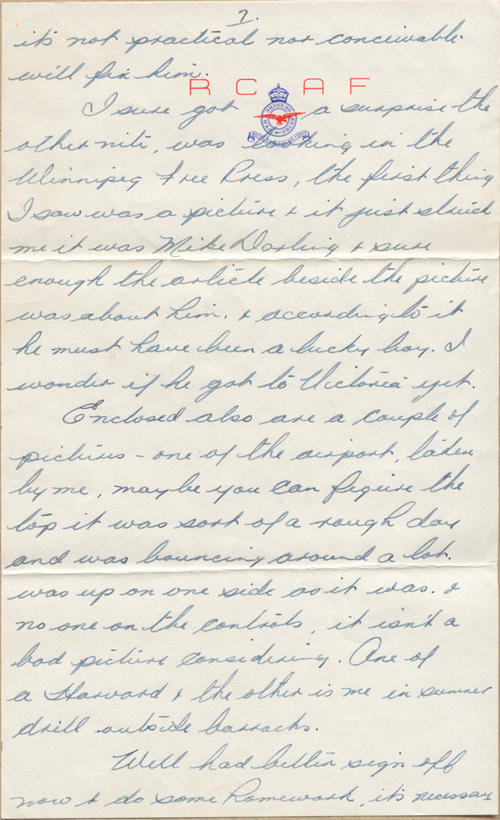 7.
it's not practical nor conceivable.
will fix him.
R C A F
I sure got a surprise the
other nite, was looking in the
Winnipeg Free Press, the first thing
I saw was a picture & it just struck
me it was Mike Darling & sure
enough the article beside the picture
was about him. & according to it
he must have been a lucky boy. I
wonder if he got to Victoria yet.
Enclosed also are a couple of
pictures - one of the airport, taken
by me, maybe you can figure the
top it was sort of a rough day
and was bouncing around a lot.
was up on one side as it was. &
no one on the controls, it isn't a
bad picture considering. One of
a Harvard & the other is me in summer
drill outside barracks.
Well had better sign off
now & do some homework, it's necessary